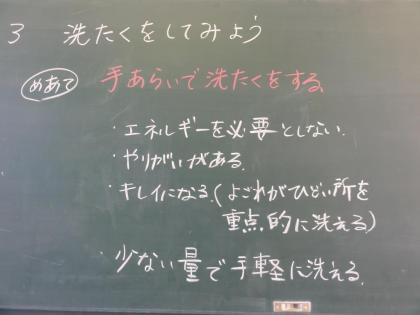 3 洗たくをしてみよう
めあて 手あらいで洗たくをする
・エネルギーを必要としない.
・やりがいがある.
・キレイになる.(よごれがひどい所を
重点的に洗える)
・少ない量で手軽に洗える.